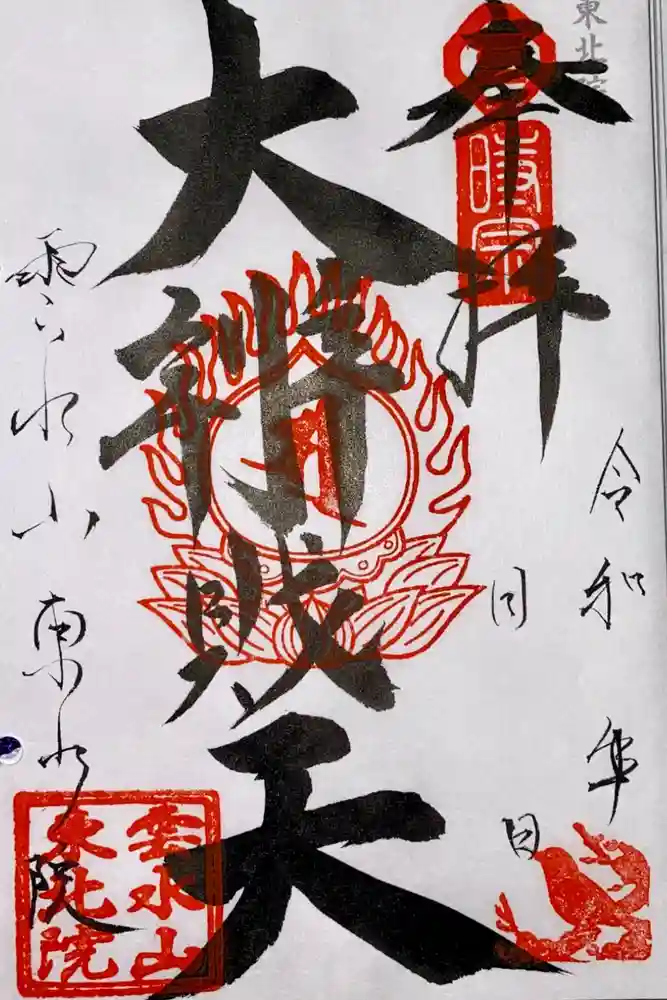 東北院
奉拝
時宗
令和 年
月 日
大辨財天
雲水山東北院
雲水山
東北院